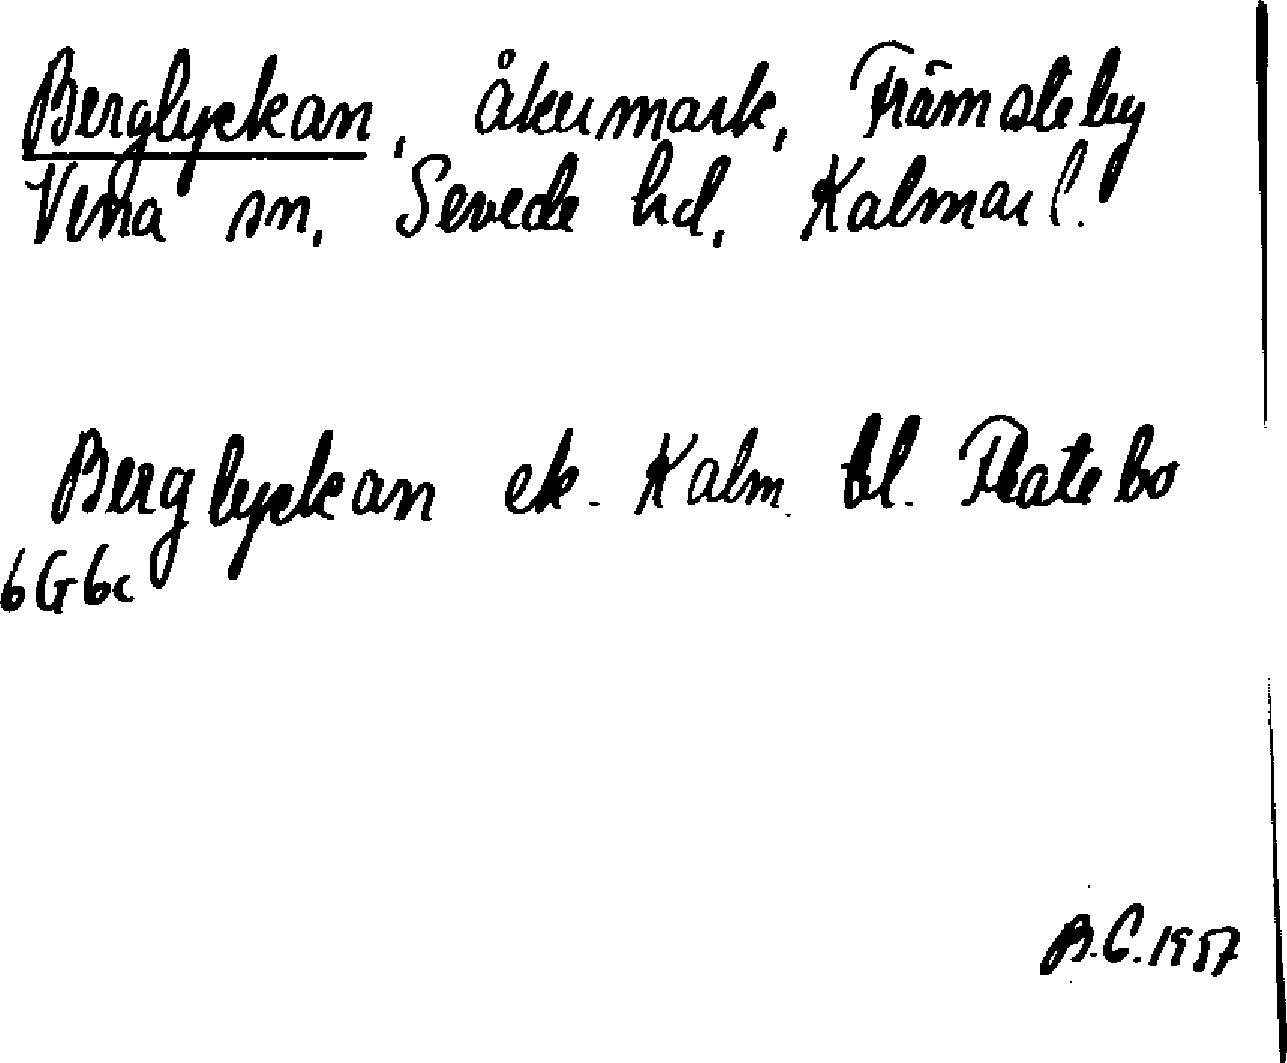 Berglyckan, åkermark, Främsteby
Vena sn, Sevede hd, Kalmar l.
Berglyckan ek. Kalm. bl. Flatebo
6G6c
B.C. 1957